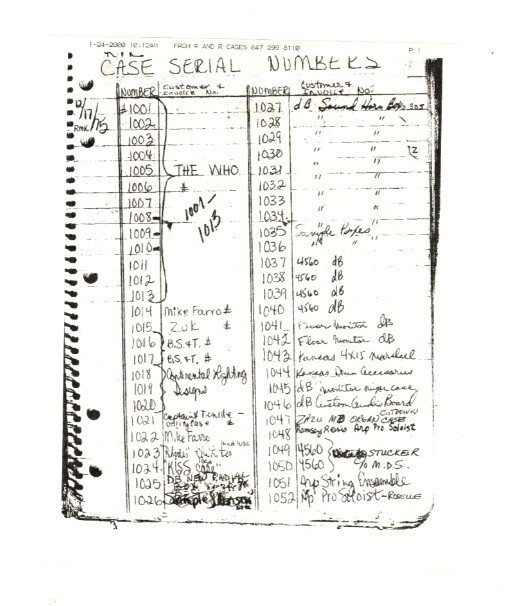 1-24-2000 10:12AM FROM R AND R CASES 847 299 8110 P.1
CASE SERIAL NUMBERS
NUMBER Customer & Invoice No.
12/17/75
#1001
1002
1003
1004
1005 THE WHO
1006 #
1007 1001-
1008 1013
1009
1010
1011
1012
1013
1014 Mike Farro #
1015 Zuk #
1016 B.S.&T. #
1017 B.S.&T. #
1018 Continental Lighting
1019 Designs
1020
1021 Captain & Tenille -
1022 Mike Farro
1023
1024 KISS
1025 DB NEW
1026
NUMBER Customer & Invoice No.
1027 dB Sound Horn Box
1028 " "
1029 " "
1030 " " 12
1031 " "
1032 " "
1033 " "
1034 " "
1035 Sample Boxes
1036 " "
1037 4560 dB
1038 4560 dB
1039 4560 dB
1040 4560 dB
1041 Floor Monitor dB
1042 Floor Monitor dB
1043 Kansas 4x15 Marshall
1044 Kansas Drum Accessories
1045 dB Monitor Mixer case
1046 dB Custom Audio Board
1047 ORGAN CASE CUTDOWN
1048 Ramsey Arp Pro Soloist
1049 4560 STUCKER
1050 4560 % M.D.S.
1051 Arp String Ensemble
1052 Arp Pro Soloist - ROSELLE